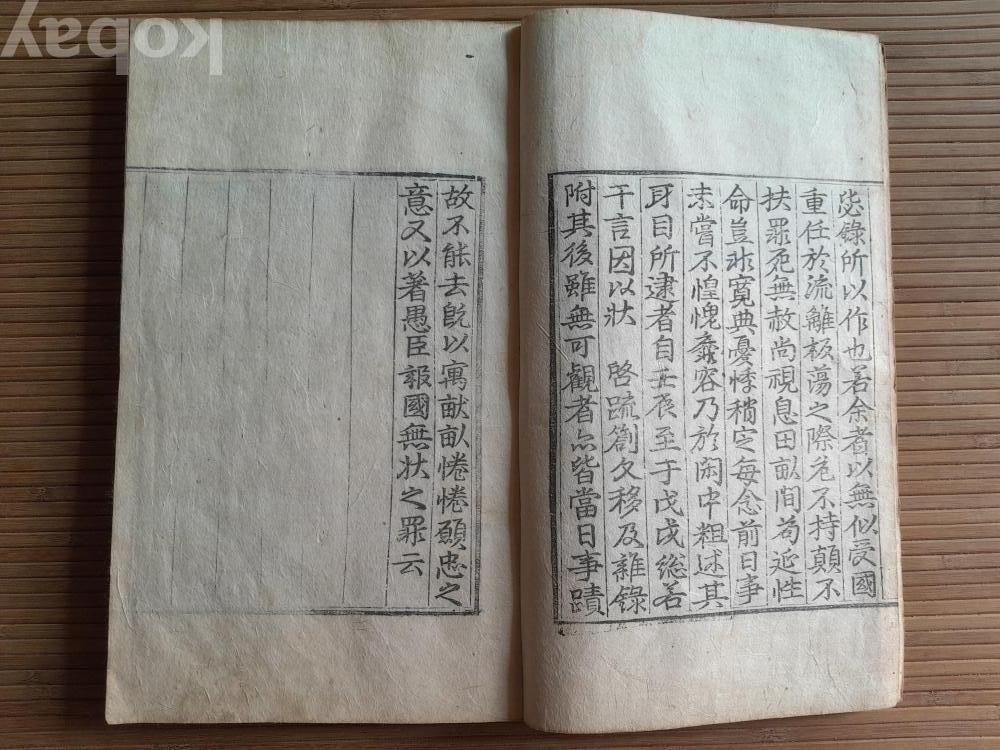 毖錄所以作也若余者以無似受國
重任於流離板蕩之際危不持顛不
扶罪死無赦尚視息田畝間苟延性
命豈非寛典憂悸稍定每念前日事
未嘗不惶愧靡容乃於閑中粗述其
耳目所逮者自壬辰至于戊戌総若
干言因以狀 啓疏箚文移及雜錄
附其後雖無可觀者亦皆當日事蹟
故不能去旣以寓献畝惓惓願忠之
意又以著愚臣報國無狀之罪云
kobay